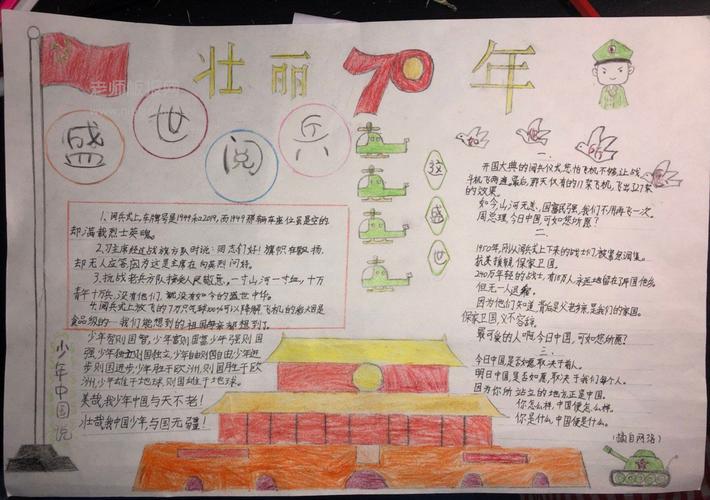 壮丽70年
盛世阅兵
这盛世
如
您
所
愿
1、阅兵式上,车牌号是1949和2019,而1949那辆车座位虽是空的
却满载烈士英魂。
2、习主席经过战旗方队时说:同志们好!旗帜在飘扬,
却无人应答,因为这是主席在向英烈问好。
3、抗战老兵方队接受人民敬意,一寸山河一寸血,十万
青年十万兵,没有他们,就没有如今的盛世中华。
4、阅兵式上放飞的7万只气球100%可以降解,飞机的
食品级的
我们能想到的祖国母亲都想到了。
少年中国说
少年智则国智,少年富则国富,少年强则国
强,少年独立则国独立,少年自由则国自由,少年进
步则国进步,少年胜于欧洲,则国胜于欧
洲,少年雄于地球,则国雄于地球。
美哉我少年中国与天不老!
壮哉我中国少年,与国无疆!
一、
开国大典的阅兵仪式,您怕飞机不够,让战
斗机飞两遍,最后,昨天仅有的17架飞机,飞出了27架
的效果。
如今,山河无恙,国富民强,我们不用再飞一次。
周总理,今日中国,可如您所愿?
二、
1950年,刚从阅兵式上下来的战士们,被紧急调集。
抗美援朝,保家卫国。
290万年轻的战士,有18万永远地留在了异国他乡。
但无一人退缩。
因为他们知道,背后是父老乡亲,是我们的家国。
保家卫国,义不容辞。
最可爱的人啊,今日中国,可如您所愿?
三、
今日中国是否如愿,取决于前人。
明日中国,是否如愿,取决于我们每个人。
因为你所站立的地方正是中国。
你怎么样,中国便怎么样。
你是什么,中国便是什么。
(摘自网络)